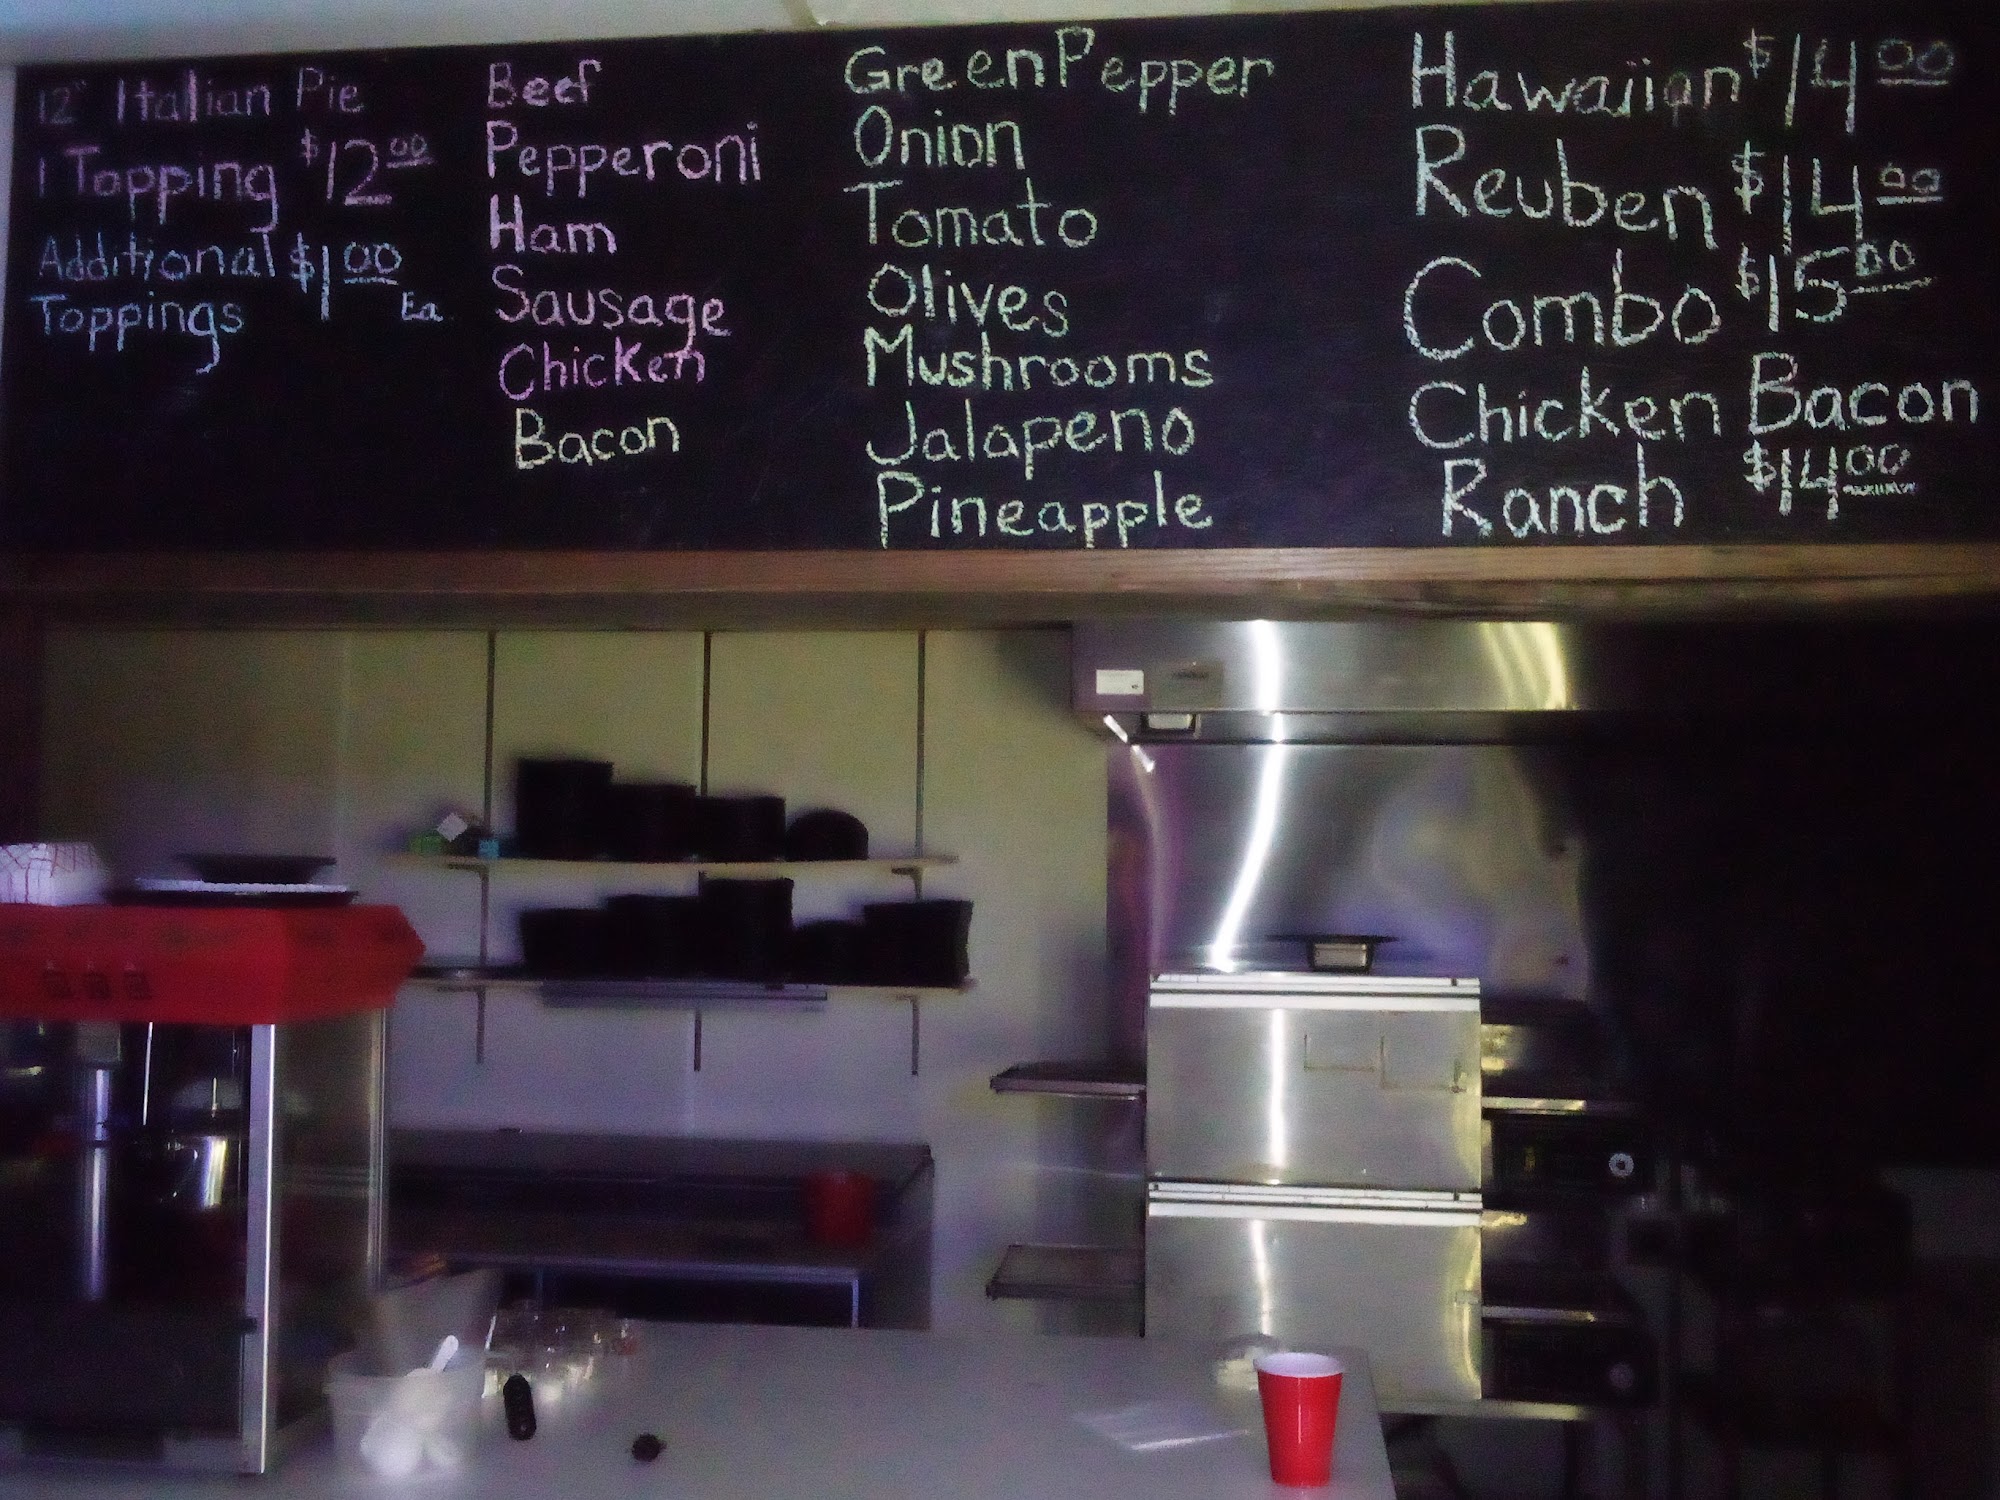 12" Italian Pie
1 Topping $12.00
Additional $1.00
Toppings Ea.
Beef
Pepperoni
Ham
Sausage
Chicken
Bacon
Green Pepper
Onion
Tomato
Olives
Mushrooms
Jalapeno
Pineapple
Hawaiian $14.00
Reuben $14.00
Combo $15.00
Chicken Bacon
Ranch $14.00